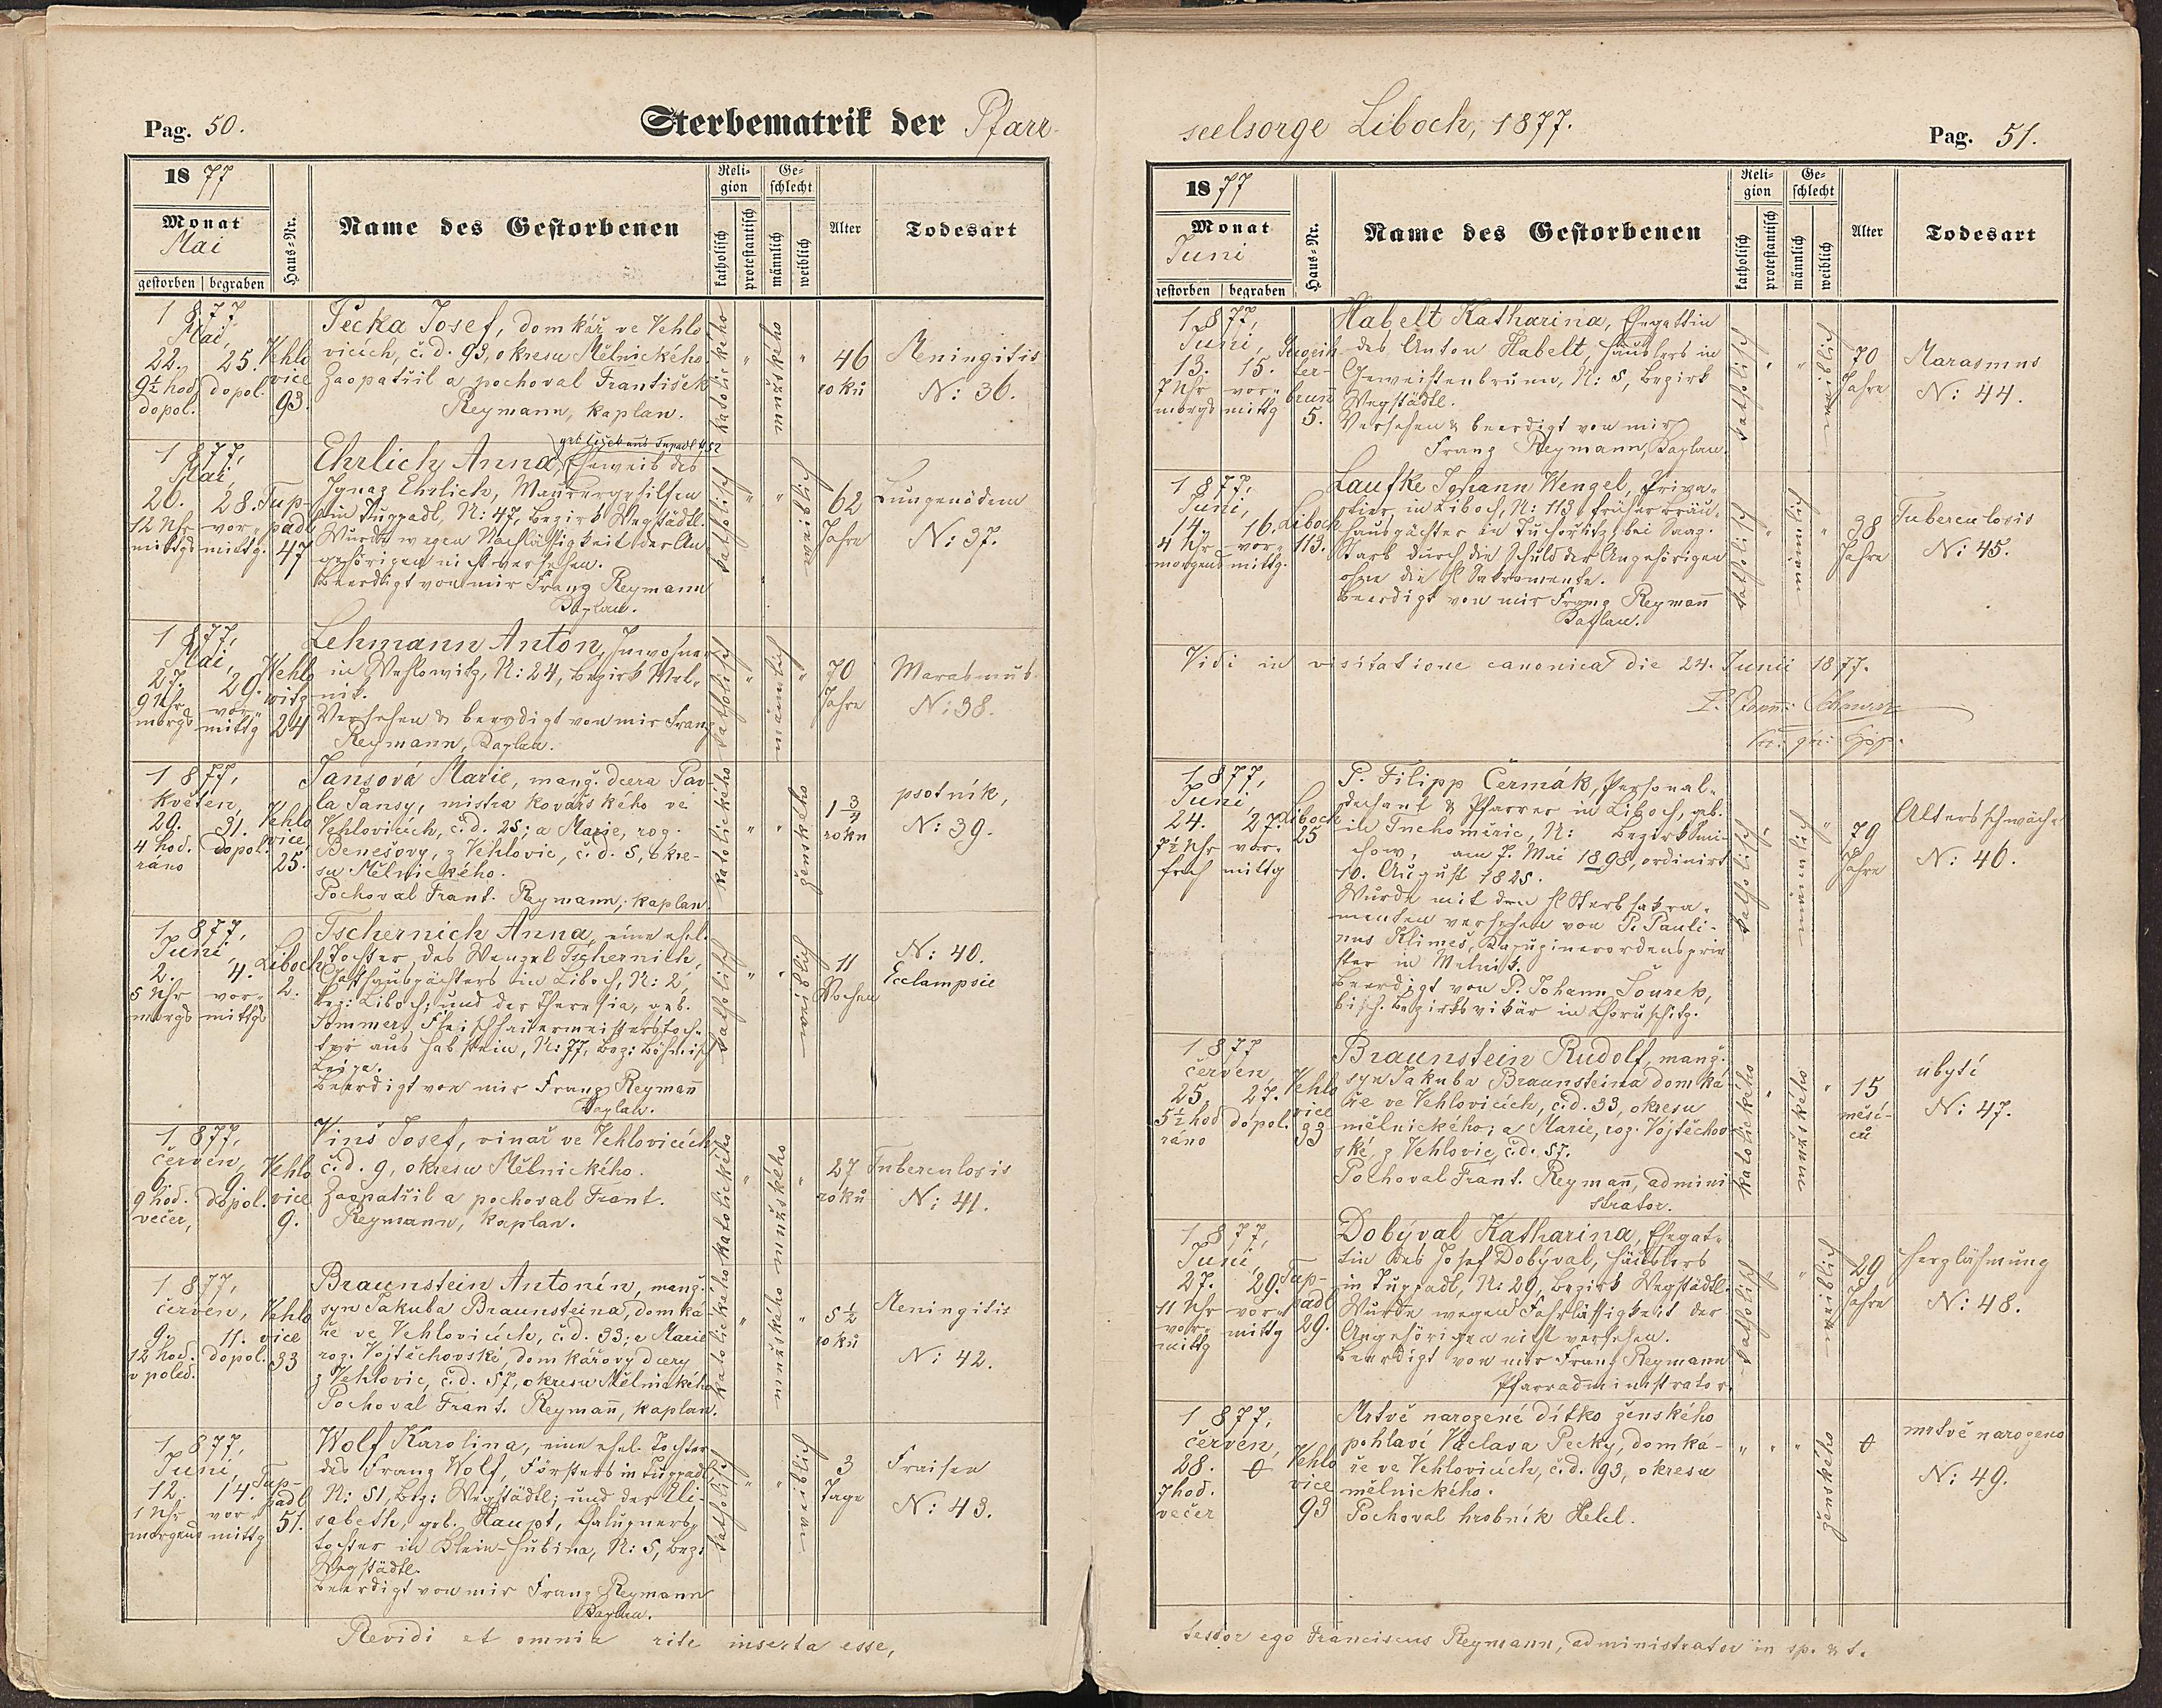 Pag. 50.
Sterbematrik der Pfarr-
1877
Monat
Mai
gestorben | begraben
Haus-Nr.
Name des Gestorbenen
Religion
katholisch
protestantisch
Geschlecht
männlich
weiblich
Alter
Todesart
1877,
Mai,
22. 25.
9½ hod. dopol.
dopol.
Vehlovice
93.
Pecka Josef, domkář ve Vehlo-
vicích, č. d. 93, okresu Mělnického.
Zaopatřil a pochoval František
Reymann, kaplan.
katolického
"
mužského
"
46
roků
Meningitis
N: 36.
1877,
Mai,
26. 28.
12 Uhr vor-
mittgs mittg.
Tup-
padl
47
Ehrlich Anna, Eheweib des
Ignaz Ehrlich, Maurergehilfen
in Tuppadl, N: 47, Bezirk Wegstädtl.
Wurde wegen Nachläßigkeit der An-
gehörigen nicht versehen.
Beerdigt von mir Franz Reymann
Kaplan.
katholisch
"
"
weiblich
62
Jahre
Lungenödem
N: 37.
1877,
Mai,
27. 29.
9 Uhr vor-
morgs mittg
Wehlo
witz
24
Lehmann Anton, Inwohner
in Wehlowitz, N: 24, Bezirk Mel-
nik.
Versehen & beerdigt von mir Franz
Reymann, Kaplan.
katholisch
"
männlich
"
70
Jahre
Marasmus
N: 38.
1877,
Květen,
29. 31.
4 hod. dopol.
ráno
Vehlo
vice,
25.
Jansová Marie, manž. dcera Pav-
la Jansy, mistra kovářského ve
Vehlovicích, č. d. 25; a Marie, roz.
Benešovy, z Vehlovic, č. d. 5, okre-
su Mělnického.
Pochoval Frant. Reymann, kaplan
katolického
"
"
ženského
1¾
roku
psotník,
N: 39.
1877,
Juni,
2. 4.
5 Uhr vor-
morgs mittgs
Liboch
2.
Tschernich Anna, eine ehel.
Tochter des Wenzel Tschernich,
Gasthauspächters in Liboch, N: 2,
Bez: Liboch; und der Theresia, geb.
Sommer, Fleischhauermeisterstoch-
ter aus Habstein, N: 77, Bez: Böhmisch
Leipa.
Beerdigt von mir Franz Reymañ
Kaplan.
katholisch
"
"
weiblich
11
Wochen
N: 40.
Ecclampsie
1877,
červen,
9.
9 hod. dopol.
večer,
Vehlo
vice
9.
Vinš Josef, vinař ve Vehlovicích,
č. d. 9, okresu Mělnického.
Zaopatřil a pochoval Frant.
Reymann, kaplan.
katolického
"
mužského
"
27
roků
Tuberculosis
N: 41.
1877,
červen,
9. 11.
12 hod. dopol.
v poled.
Vehlo
vice
33
Braunstein Antonín, manž.
syn Jakuba Braunsteina, domká-
ře ve Vehlovicích, č. d. 33; a Marie
roz. Vojtěchovské, domkářovy dcery
z Vehlovic, č. d. 57, okresu Mělnického
Pochoval Frant. Reymañ, kaplan.
katolického
"
mužského
"
5½
roků
Meningitis
N: 42.
1877,
Juni,
12. 14.
1 Uhr vor-
morgens mittg
Tup-
padl
51.
Wolf Karolina, eine ehel. Tochter
des Franz Wolf, Försters in Tuppadl,
N: 51, Bez: Wegstädtl; und der Eli-
sabeth, geb. Haupt, Chalupners-
tochter in Klein-Hubina, N: 5, Bez:
Wegstädtl.
Beerdigt von mir Franz Reymann
Kaplan.
katholisch
"
"
weiblich
3
Tage
Fraisen
N: 43.
Revidi et omnia rite inserta esse,
seelsorge Liboch, 1877.
Pag. 51.
1877
Monat
Juni
gestorben | begraben
Haus-Nr.
Name des Gestorbenen
Religion
katholisch
protestantisch
Geschlecht
männlich
weiblich
Alter
Todesart
1877,
Juni,
13. 15.
7 Uhr vor-
morgs mittg
5.
Habelt Katharina, Ehegattin
des Anton Habelt, Häuslers in
Geweihtenbrunn, N: 5, Bezirk
Wegstädtl.
Versehen & beerdigt von mir
Franz Reymann, Kaplan.
katholisch
"
"
weiblich
70
Jahre
Marasmus
N: 44.
1877,
Juni,
14. 16.
4 Uhr vor-
morgens mittg.
Liboch
113.
Laufke Johann Wenzel, Priva-
tier in Liboch, N: 113, früher Bräu-
hauspächter in Tuchorschitz bei Saaz.
Starb durch die Schuld der Angehörigen
ohne die hl Sakramente.
Beerdigt von mir Franz Reymañ
Kaplan.
katholisch
"
männlich
"
38
Jahre
Tuberculosis
N: 45.
Vidi in visitatione canonica die 24. Junii 1877.
1877,
Juni,
24. 27.
7½ Uhr vor-
früh mittg
Liboch
25
P. Filipp Čermák, Personal-
dechant & Pfarrer in Liboch, geb.
in Tuchoměřic, N: Bezirk Smi-
chow, am 7. Mai 1898, ordinirt
10. August 1825.
Wurde mit den hl Sterbsakra-
menten versehen von P. Pauli-
nus Klimeš, Kapuzinerordensprie
ster in Melnik.
Beerdigt von P. Johann Šourek,
bisch. Bezirksvikär in Choruschitz.
katholisch
"
männlich
"
79
Jahre
Altersschwäche
N: 46.
1877
červen
25. 27.
5½ hod dopol.
ráno
Vehlo
vice
33
Braunstein Rudolf, manž.
syn Jakuba Braunsteina domká-
ře ve Vehlovicích, č. d. 33, okresu
mělnického; a Marie, roz. Vojtěchov
ské, z Vehlovic, č. d. 57.
Pochoval Frant. Reymañ, admini
strator.
katolického
"
mužského
"
15
měsí-
ců
ubytí
N: 47.
1877,
Juni,
27. 29.
11 Uhr vor-
vor- mittg
mittg
Tup-
padl
29.
Dobýval Katharina, Ehegat-
tin des Josef Dobýval, Häuslers
in Tuppadl, N: 29, Bezirk Wegstädtl.
Wurde wegen Fahrläßigkeit der
Angehörigen nicht versehen.
Beerdigt von mir Franz Reymann
Pfarradministrator.
katholisch
"
"
weiblich
29
Jahre
Herzlähmung
N: 48.
1877,
červen,
28. 0
7 hod.
večer
Vehlo
vice
93
Mrtvě narozené dítko ženského
pohlaví Václava Pecky, domká-
ře ve Vehlovicích, č. d. 93, okresu
mělnického.
Pochoval hrobník Helcl.
" " "
ženského
0
mrtvě narozeno
N: 49.
testor ego Franciscus Reymann, administrator in sp. & t.